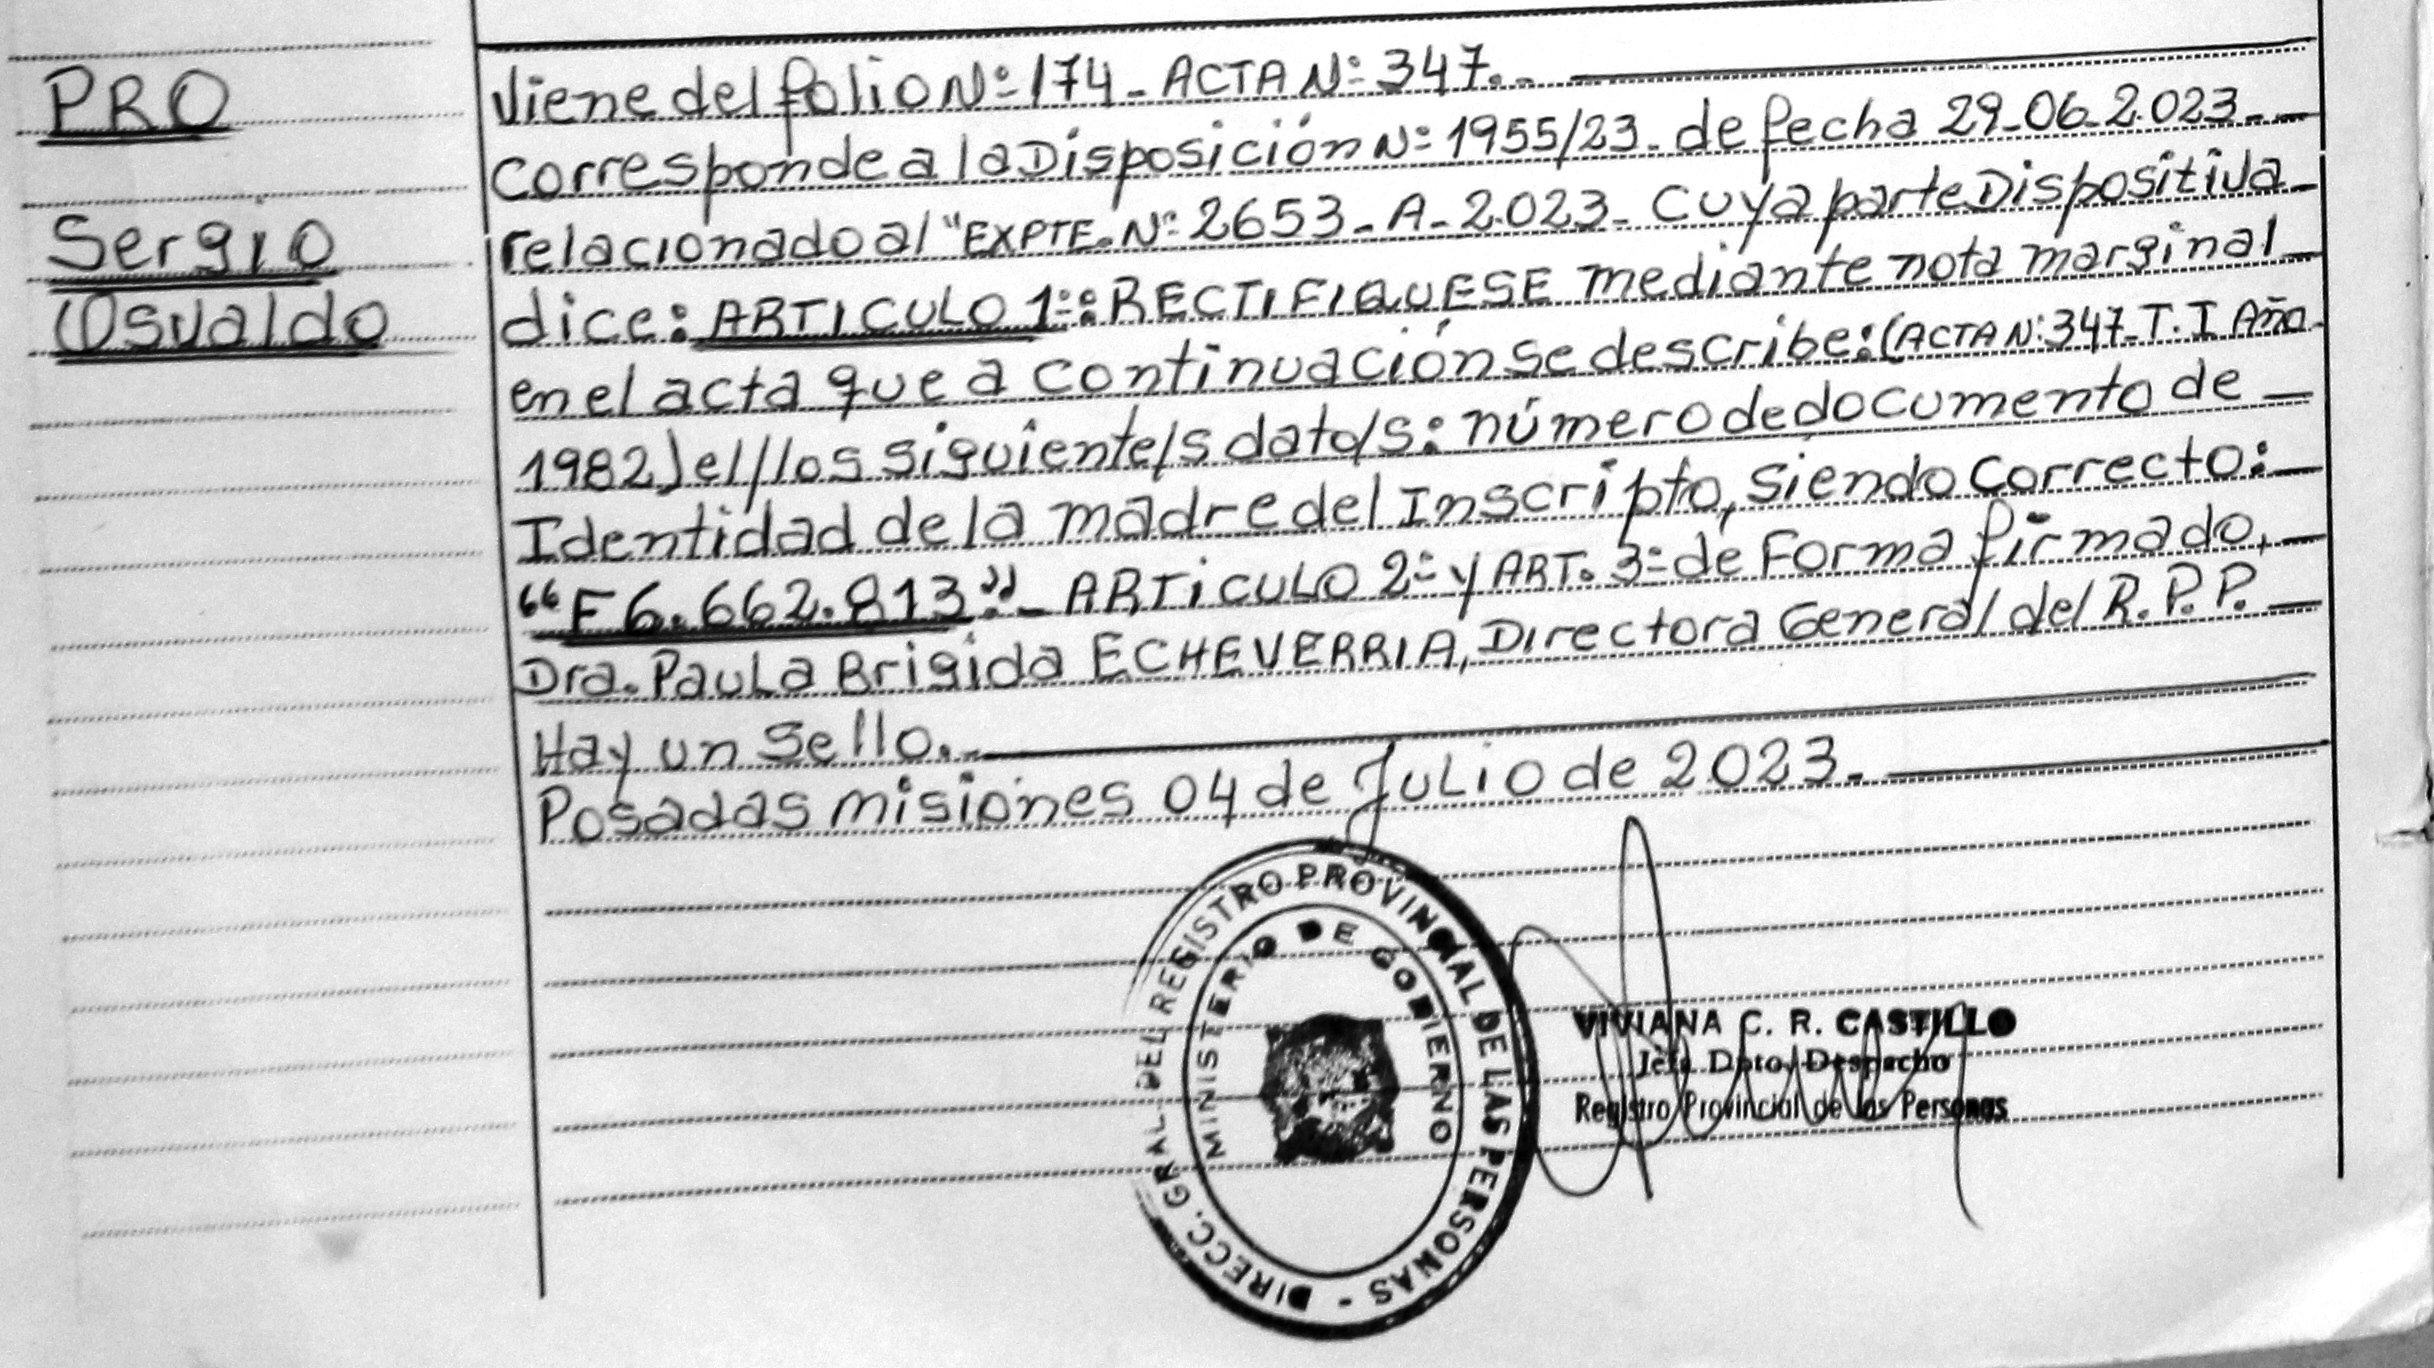 PRO
Sergio
Osvaldo
Viene del folio Nº 174 - ACTA Nº 347.-
Corresponde a la Disposición Nº 1955/23 - de fecha 29-06-2.023 -
relacionado al "EXPTE. Nº 2653 - A - 2.023 - Cuya parte Dispositiva
dice: ARTICULO 1º: RECTIFIQUESE mediante nota marginal
en el acta que a continuación se describe: (ACTA Nº 347 - T. I Año
1982) el/los siguiente/s dato/s: número de documento de
Identidad de la madre del Inscripto, siendo correcto:
"F 6.662.813" - ARTICULO 2º y ART. 3º de Forma firmado,
Dra. Paula Brigida ECHEVERRIA, Directora General del R.P.P.
Hay un Sello.-
Posadas misiones 04 de Julio de 2023.
DIRECC. GRAL. DEL REGISTRO PROVINCIAL DE LAS PERSONAS -
MINISTERIO DE GOBIERNO
VIVIANA C. R. CASTILLO
Jefa Dpto. Despacho
Registro Provincial de las Personas